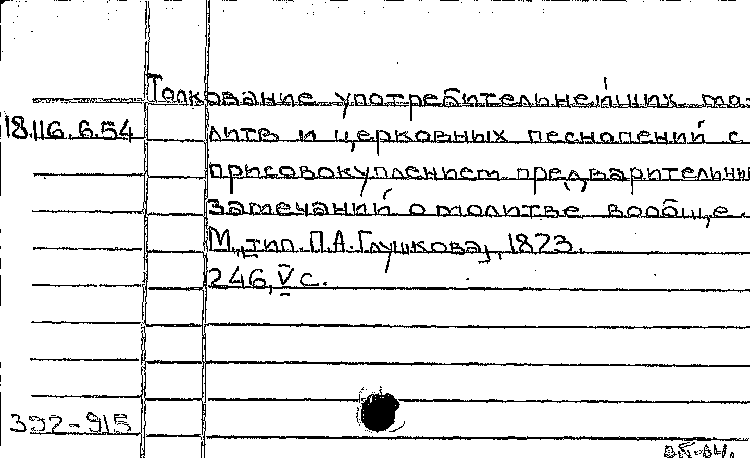 Толкование употребительнейших мо-
18.116.6.54 литв и церковных песнопений с
присовокуплением предварительны
замечаний о молитве вообще.
М., тип. П.А. Глушкова, 1873.
246, V с.
392-915